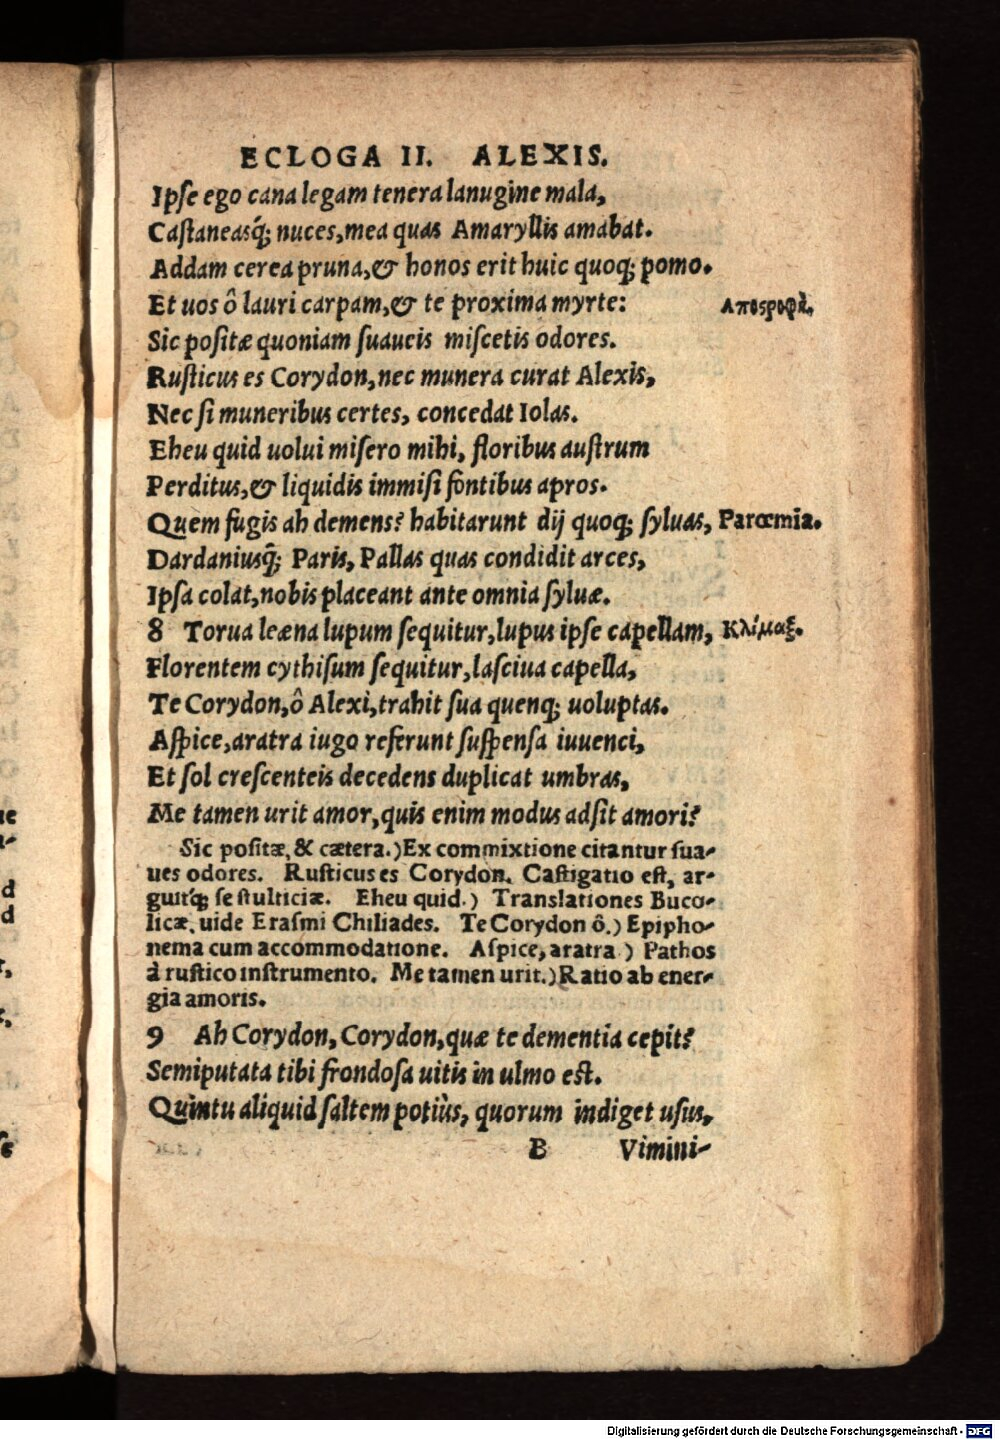 ECLOGA II. ALEXIS.
Ipse ego cana legam tenera lanugine mala,
Castaneasq́; nuces, mea quas Amaryllis amabat.
Addam cerea pruna, & honos erit huic quoq; pomo.
Et uos ô lauri carpam, & te proxima myrte:
Sic positæ quoniam suaueis miscetis odores.
Rusticus es Corydon, nec munera curat Alexis,
Nec si muneribus certes, concedat Iolas.
Eheu quid uolui misero mihi, floribus austrum
Perditus, & liquidis immisi fontibus apros.
Quem fugis ah demens? habitarunt dij quoq; syluas, Parœmia.
Dardaniusq́; Paris, Pallas quas condidit arces,
Ipsa colat, nobis placeant ante omnia syluæ.
8 Torua leæna lupum sequitur, lupus ipse capellam, Κλίμαξ.
Florentem cythisum sequitur, lasciua capella,
Te Corydon, ô Alexi, trahit sua quenq; uoluptas.
Aspice, aratra iugo referunt suspensa iuuenci,
Et sol crescenteis decedens duplicat umbras,
Me tamen urit amor, quis enim modus adsit amori?
Sic positæ, & cætera.) Ex commixtione citantur sua-
ues odores. Rusticus es Corydon. Castigatio est, ar-
guitq́; se stulticiæ. Eheu quid.) Translationes Buco-
licæ, uide Erasmi Chiliades. Te Corydon ô.) Epipho-
nema cum accommodatione. Aspice, aratra.) Pathos
à rustico instrumento. Me tamen urit.) Ratio ab ener-
gia amoris.
9 Ah Corydon, Corydon, quæ te dementia cepit?
Semiputata tibi frondosa uitis in ulmo est.
Quin tu aliquid saltem potiùs, quorum indiget usus,
B Vimini-
Digitalisierung gefördert durch die Deutsche Forschungsgemeinschaft - DFG